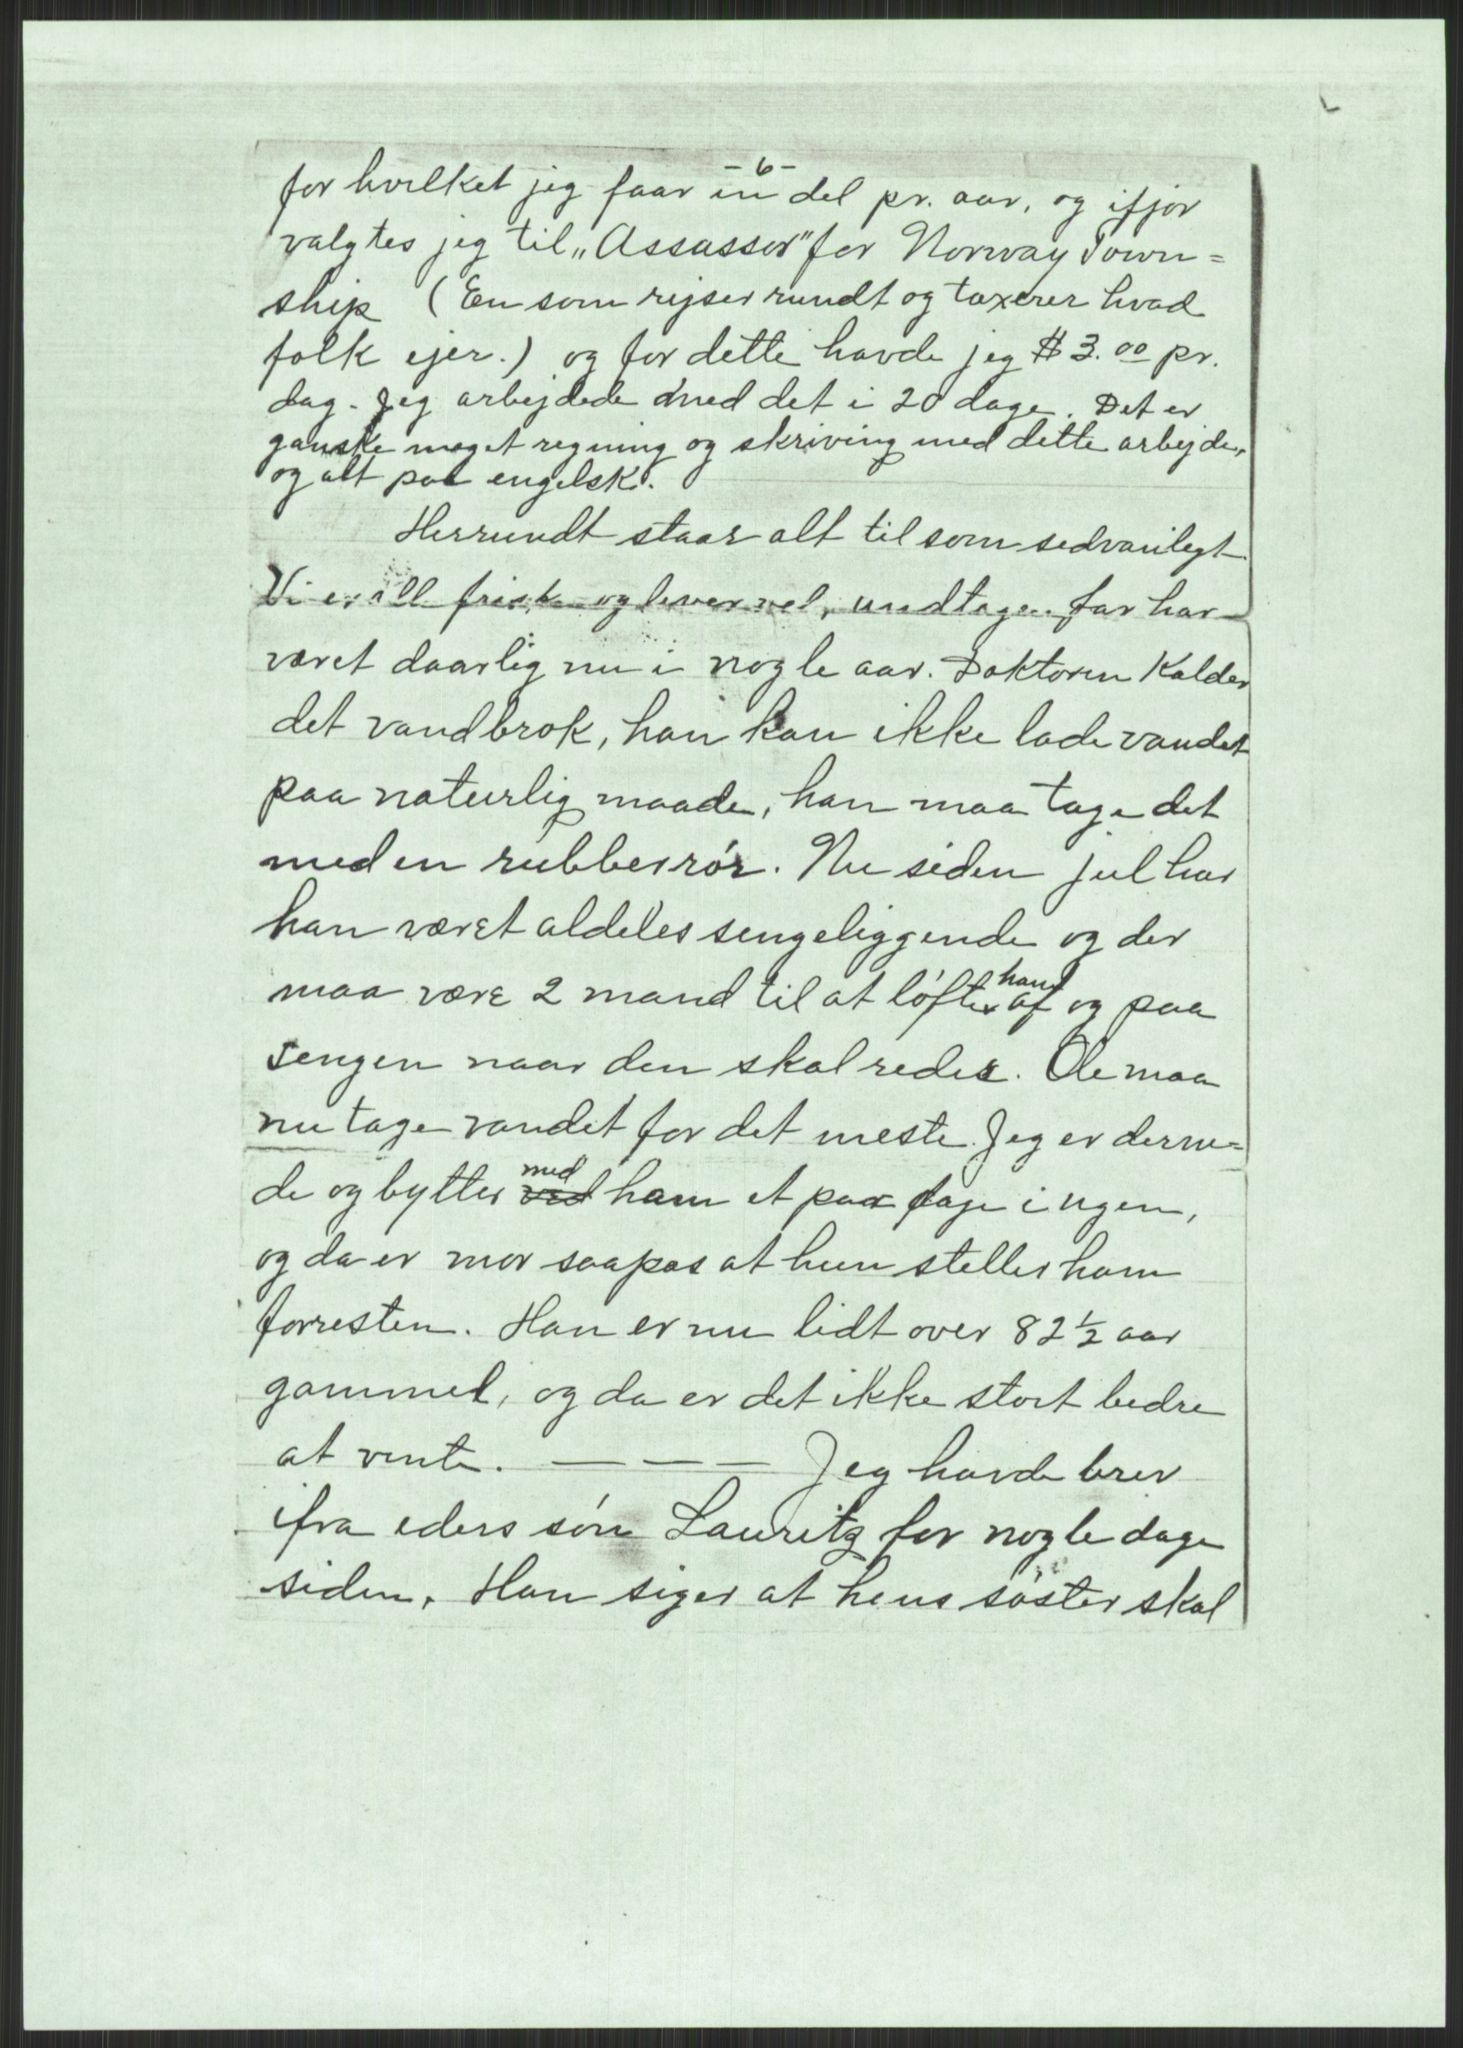 -6-
for hvilket jeg faar en del pr. aar, og ifjor
valgtes jeg til „Assassor" for Norway Town=
ship (En som rejser rundt og taxerer hvad
folk ejer.) og for dette havde jeg $3.00 pr.
dag. Jeg arbejdede med det i 20 dage. Det er
ganske meget regning og skriving med dette arbejde,
og alt paa engelsk.
Herrundt staar alt til som sedvanligt.
Vi er all friske og lever vel, undtagen far har
været daarlig nu i nogle aar. Doktoren kalder
det vandbrok, han kan ikke lade vandet
paa naturlig maade, han maa tage det
med en rubberrór. Nu siden jul har
han været aldeles sengeliggende og der
maa være 2 mand til at lófte ham af og paa
sengen naar den skal redes. Ole maa
nu tage vandet for det meste. Jeg er derne=
de og bytter med ham et par dage i ugen,
og da er mor saapas at hun steller ham
forresten. Han er nu lidt over 82½ aar
gammel, og da er det ikke stort bedre
at vente. — — — Jeg havde brev
ifra eders són Lauritz for nogle dage
siden. Han siger at hans sóster skal